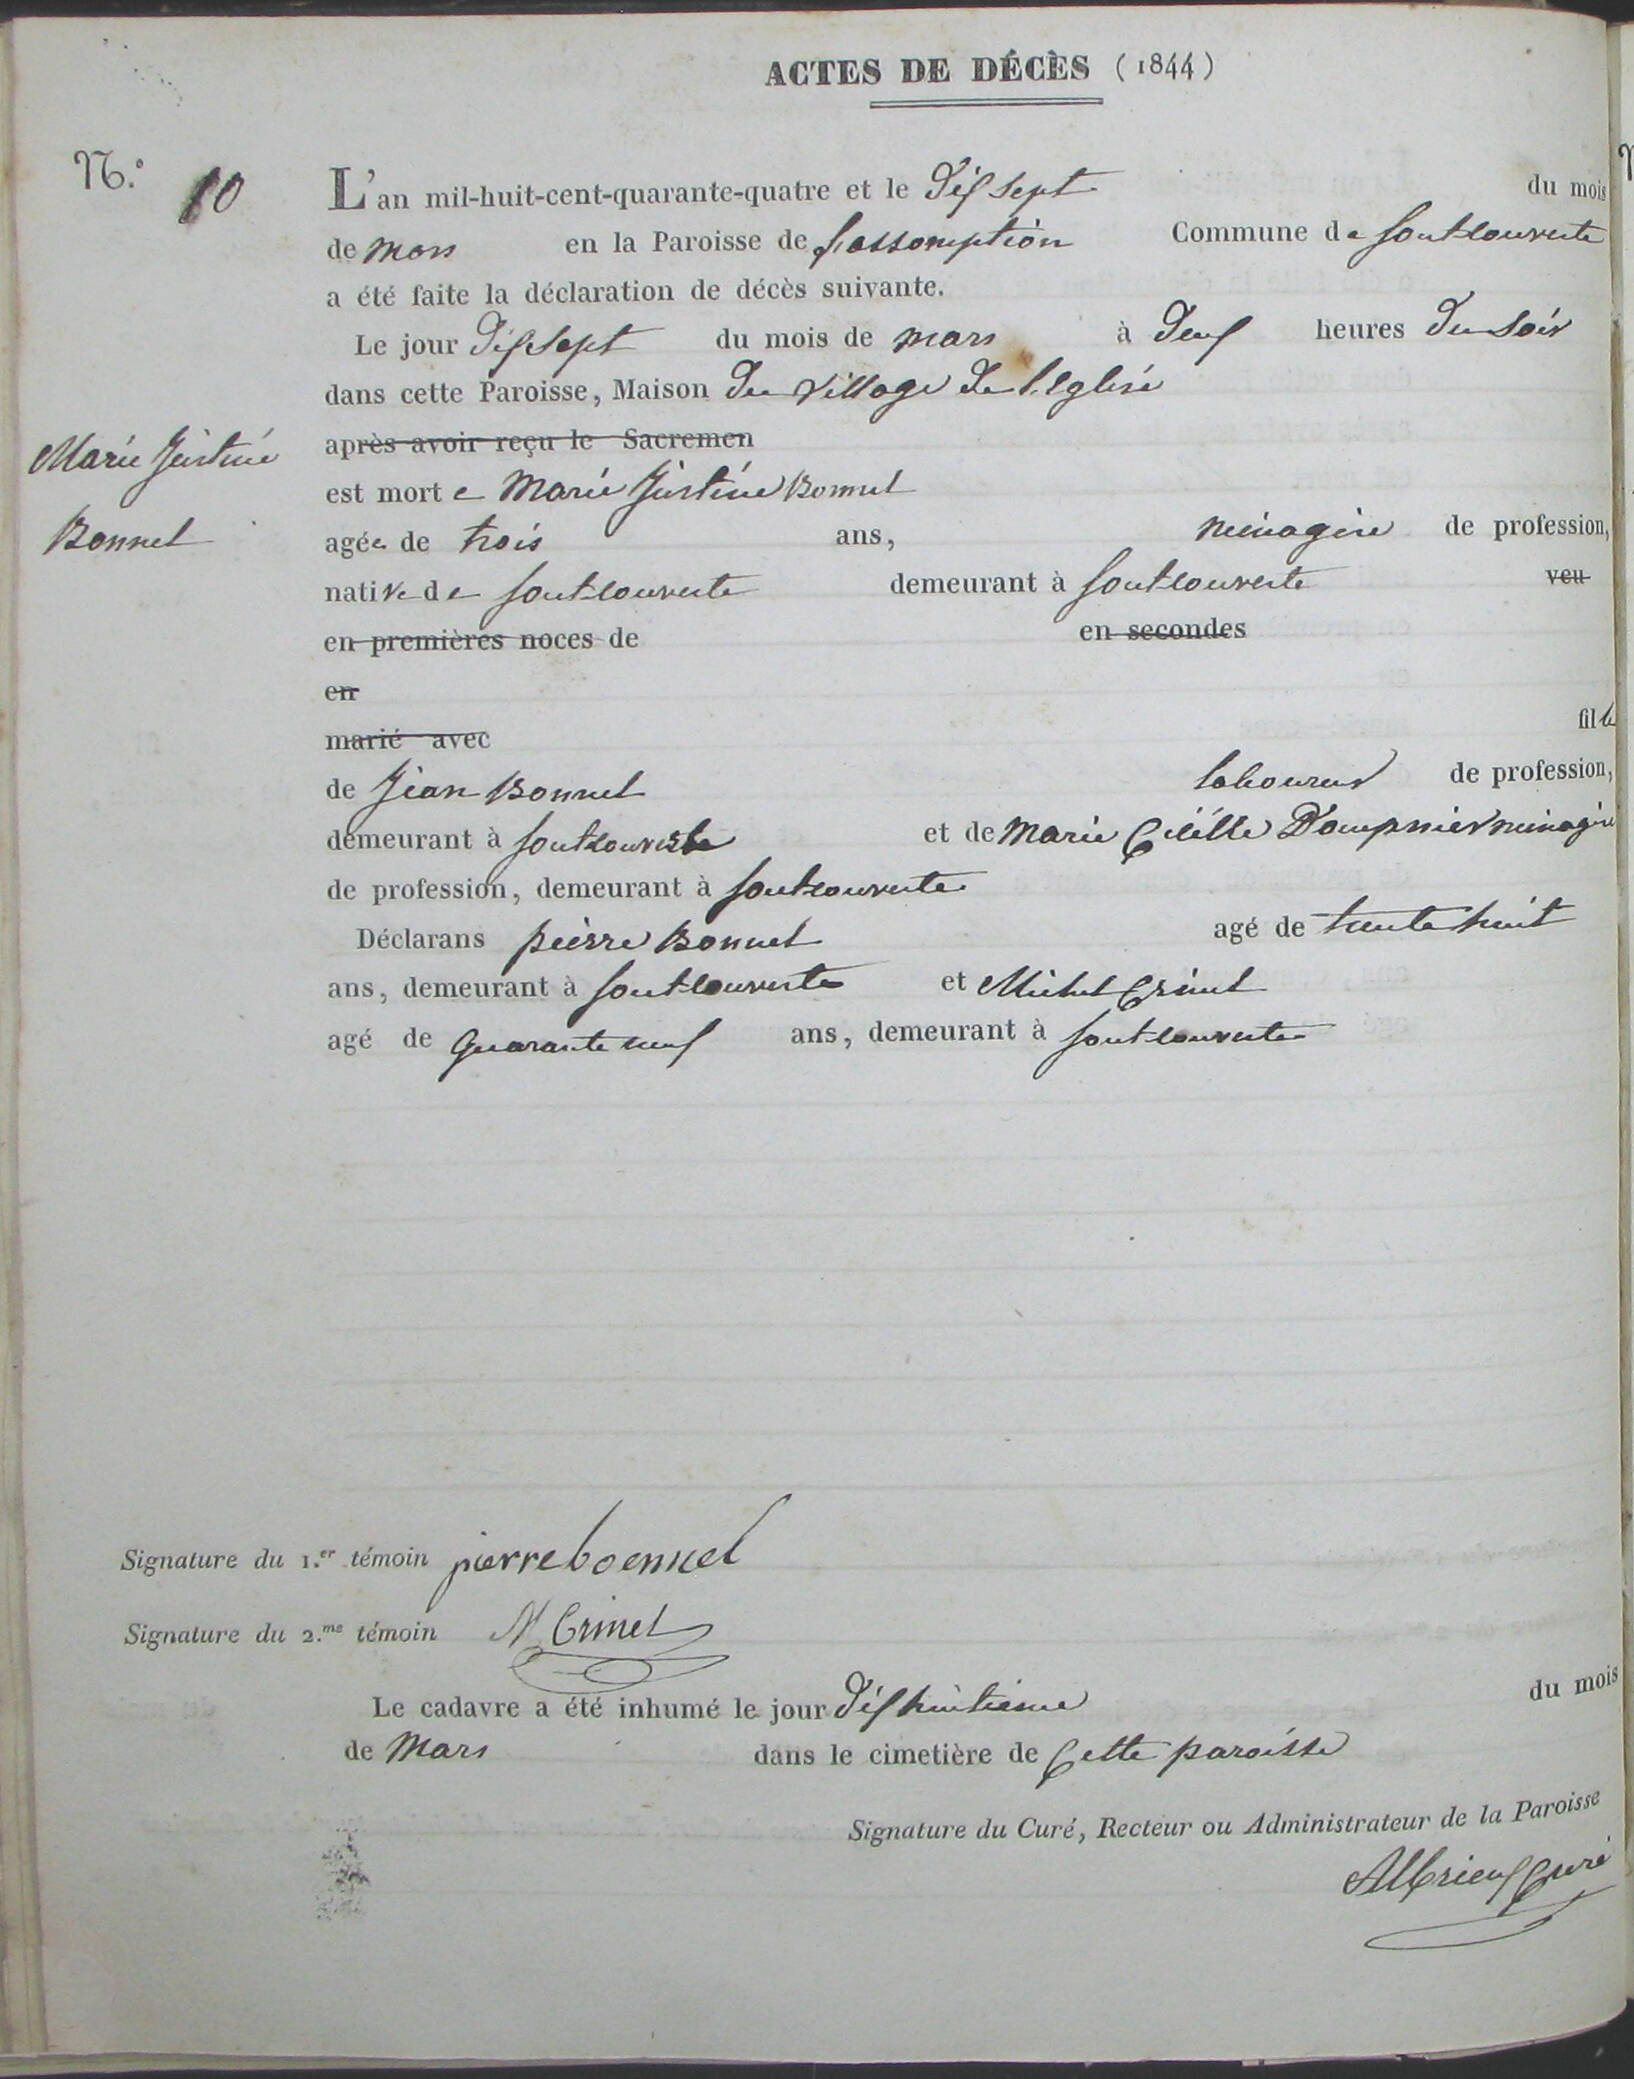 ACTES DE DÉCÈS (1844)
N.° 10
L'an mil-huit-cent-quarante-quatre et le dix sept du mois
de mars en la Paroisse de l'assomption Commune de fontcouverte
a été faite la déclaration de décès suivante.
Le jour dix sept du mois de mars à deux heures du soir
dans cette Paroisse, Maison du village de l'Eglise
Marie Justine
Bonnel
après avoir reçu le Sacremen
est morte Marie Justine Bonnel
agée de trois ans, ménagère de profession,
native de fontcouverte demeurant à fontcouverte veu
en premières noces de en secondes
en
marié avec fille
de Jean Bonnel laboureur de profession,
demeurant à fontcouverte et de Marie Dompnier ménagère
de profession, demeurant à fontcouverte
Déclarans pierre Bonnel agé de trente huit
ans, demeurant à fontcouverte et Michel Crinel
agé de Quarante neuf ans, demeurant à fontcouverte
Signature du 1.er témoin pierre boennel
Signature du 2.me témoin M Crinel
Le cadavre a été inhumé le jour dix huitieme du mois
de Mars dans le cimetière de Cette paroisse
Signature du Curé, Recteur ou Administrateur de la Paroisse
Albrieux Curé